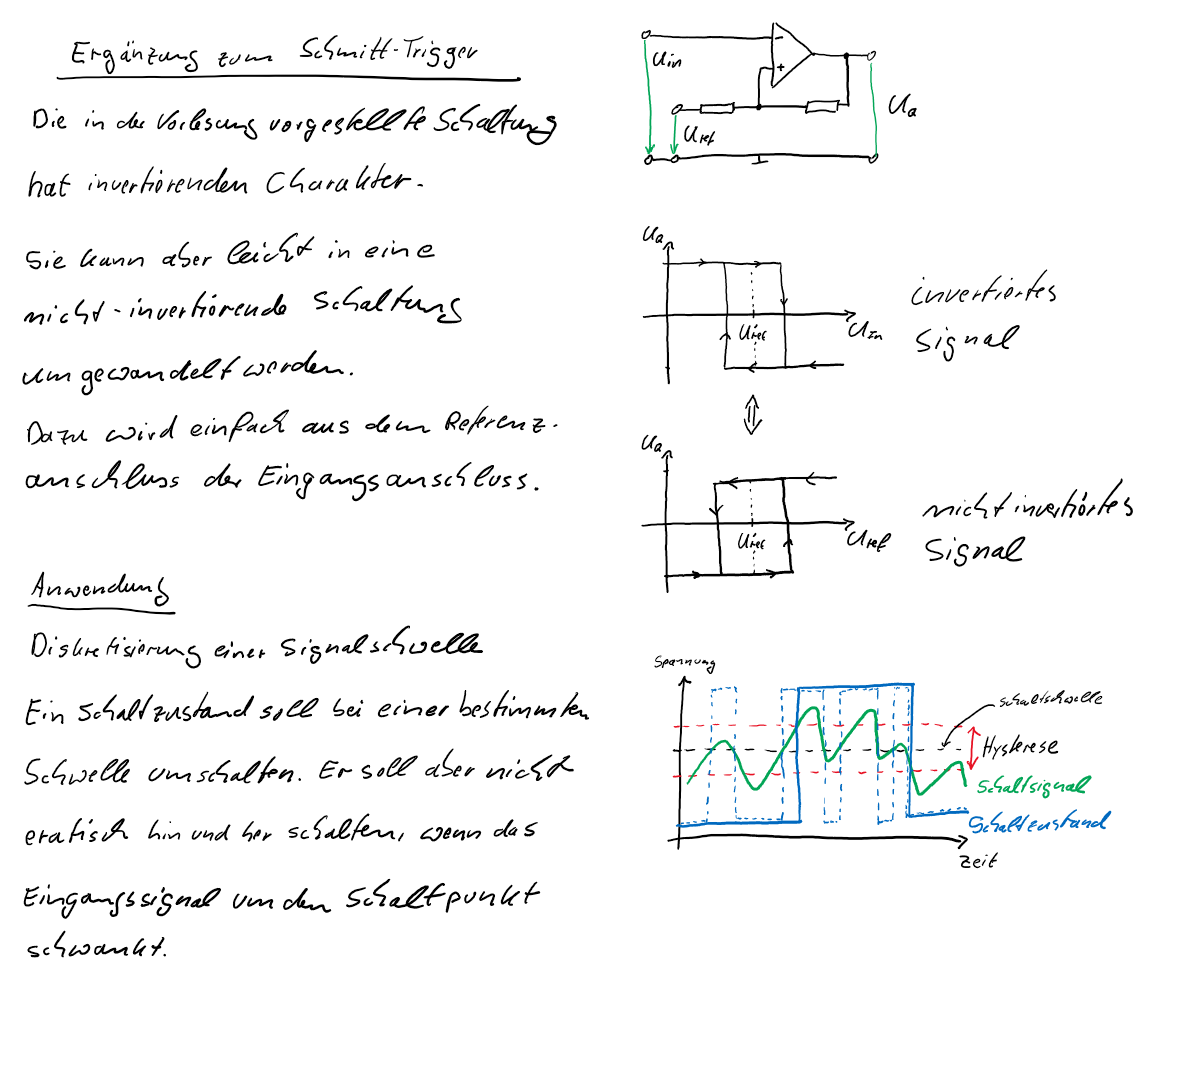 Ergänzung zum Schmitt-Trigger
Die in der Vorlesung vorgestellte Schaltung
hat invertierenden Charakter.
Sie kann aber leicht in eine
nicht-invertierende Schaltung
umgewandelt werden.
Dazu wird einfach aus dem Referenz-
anschluss der Eingangsanschluss.
Anwendung
Diskretisierung einer Signalschwelle
Ein Schaltzustand soll bei einer bestimmten
Schwelle umschalten. Er soll aber nicht
eratisch hin und her schalten, wenn das
Eingangssignal um den Schaltpunkt
schwankt.
Uin
-
+
Uref
Ua
Ua
Uref
Uin
invertiertes
Signal
Ua
Uref
Uref
nicht invertiertes
Signal
Spannung
Schaltschwelle
Hysterese
Schaltsignal
Schaltzustand
Zeit